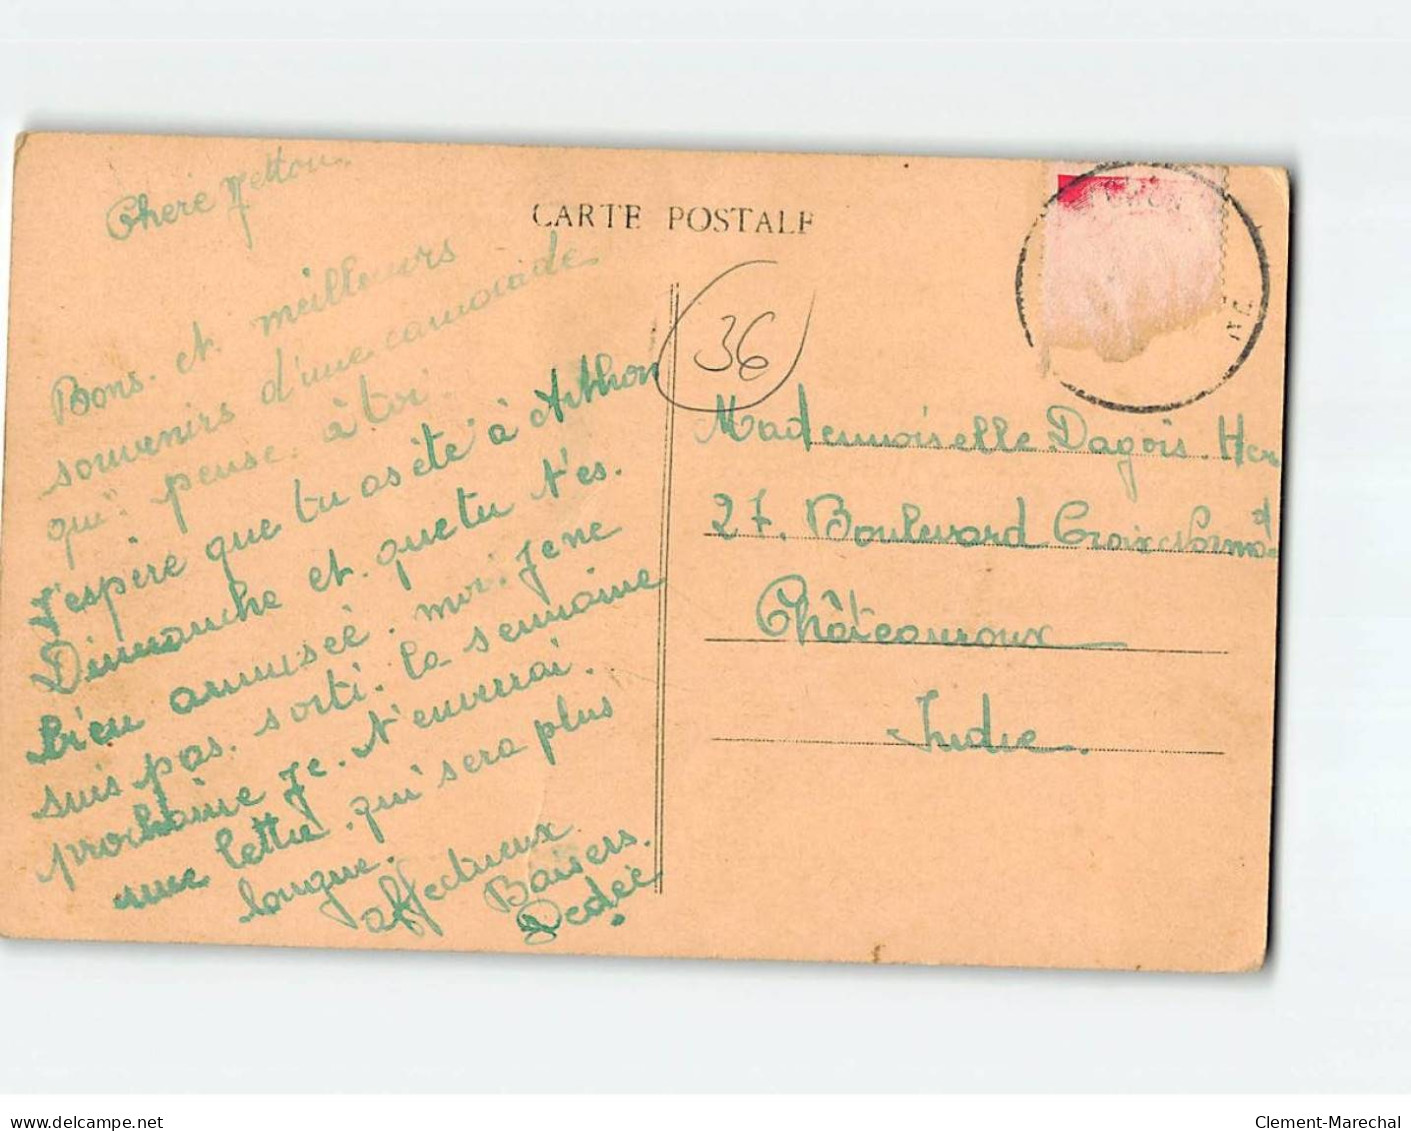 CARTE POSTALE
36
Chère Jetton
Bons et meilleurs
souvenirs d'une camarade
qui pense à toi.
J'espère que tu as été à Arthon
Dimanche et que tu t'es.
bien amusée. moi Je ne
suis pas sorti. la semaine
prochaine Je t'enverrai.
une lettre qui sera plus
longue.
affectueux
Baisers.
Dedée
Mademoiselle Dagois. Hen
27. Boulevard Croix Normand
Châteauroux
Indre.
delcampe.net
Clement-Marechal